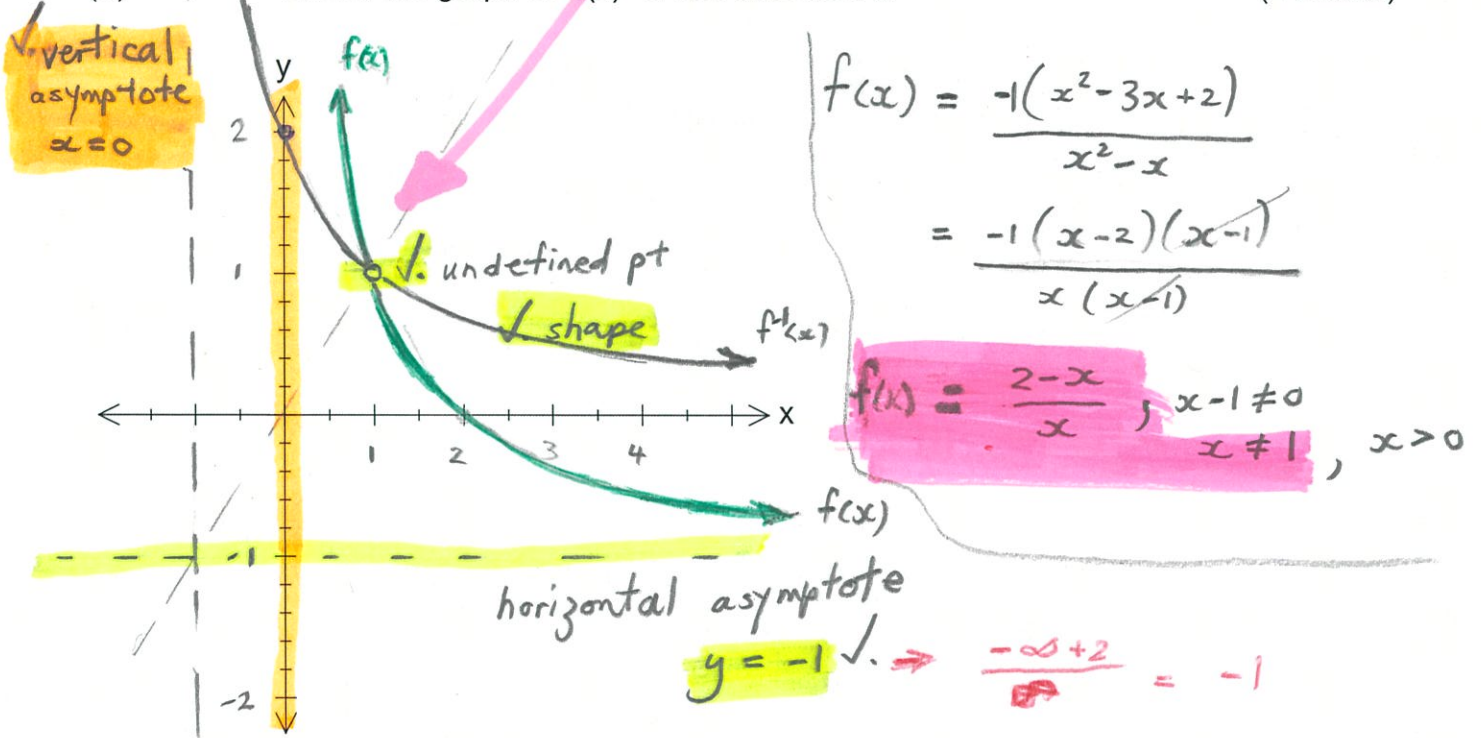 ✓. vertical
asymptote
x = 0
y
f(x)
2
1
✓. undefined pt
✓. shape
f⁻¹(x)
x
1 2 3 4
f(x)
-1
horizontal asymptote
y = -1 ✓. ⇒ (-∞+2)/∞ = -1
-2
f(x) = -1(x² - 3x + 2)/(x² - x)
= -1(x-2)(x-1)/(x(x-1))
f(x) = (2-x)/x ; x-1 ≠ 0
x ≠ 1, x > 0